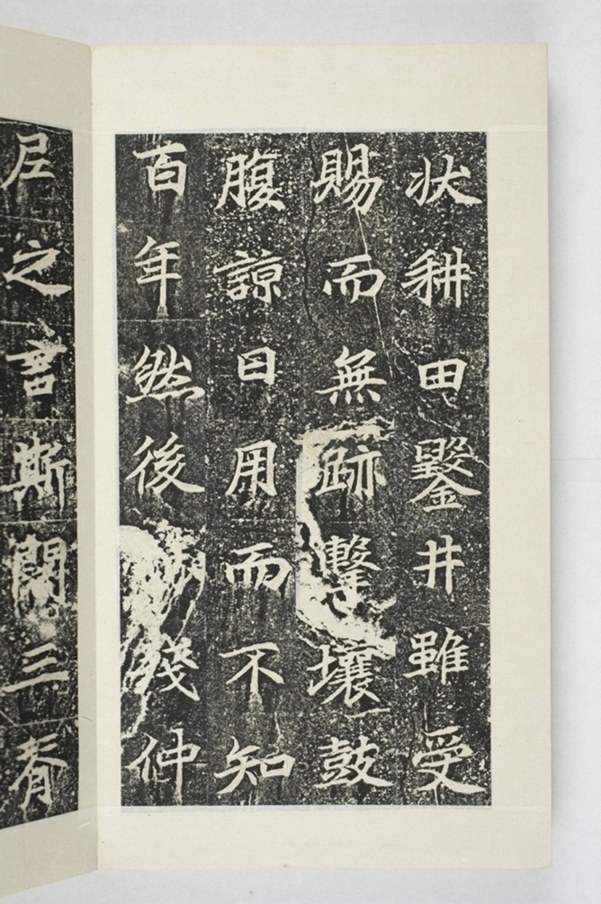 状耕田鑿井雖受
賜而無跡擊壤鼓
腹諒日用而不知
百年然後殘仲
尼之言斯闡三脊